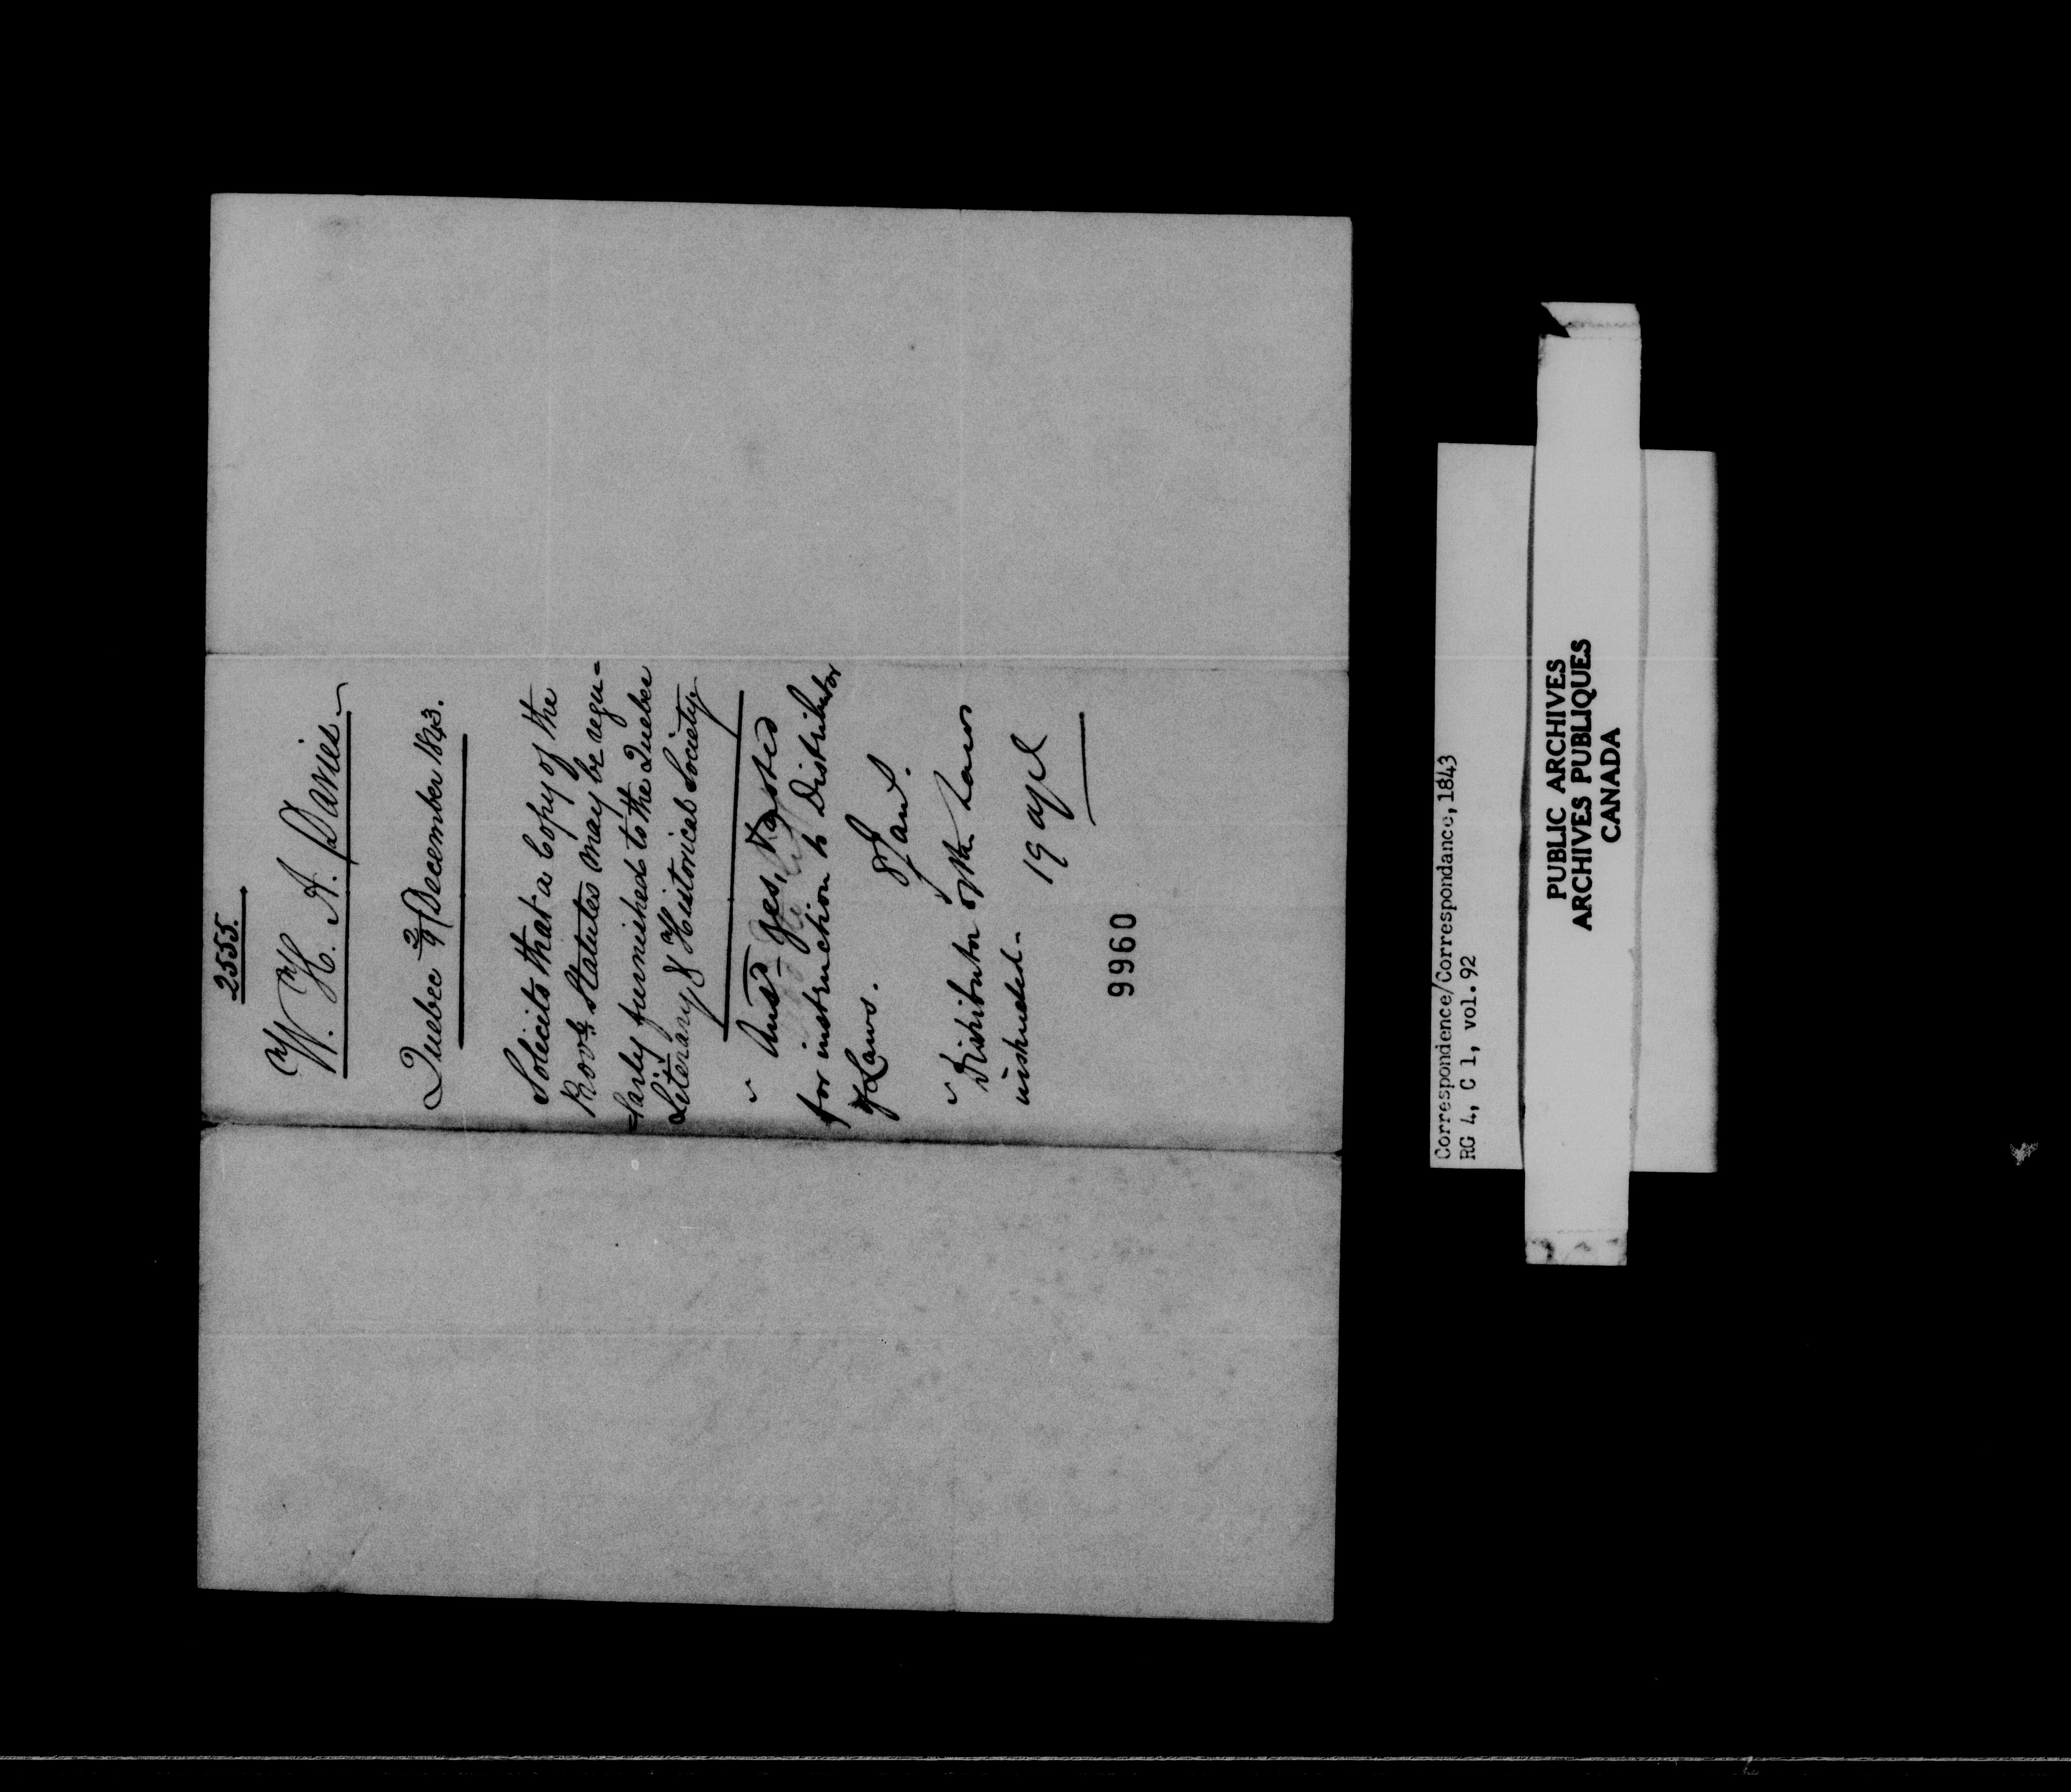 2555.
W. H. A. Davies
Quebec 9 December 1843.
Solicits that a Copy of the
Statutes may be regu=
=larly furnished to the Quebec
Literary & Historical Society
Ansd- yes,
for instruction to Distributor
of Laws.
8 Jan
Distributor of the Laws
instructed-
19
9960
Correspondence/Correspondance, 1843
RG 4, C 1, vol. 92
PUBLIC ARCHIVES
ARCHIVES PUBLIQUES
CANADA